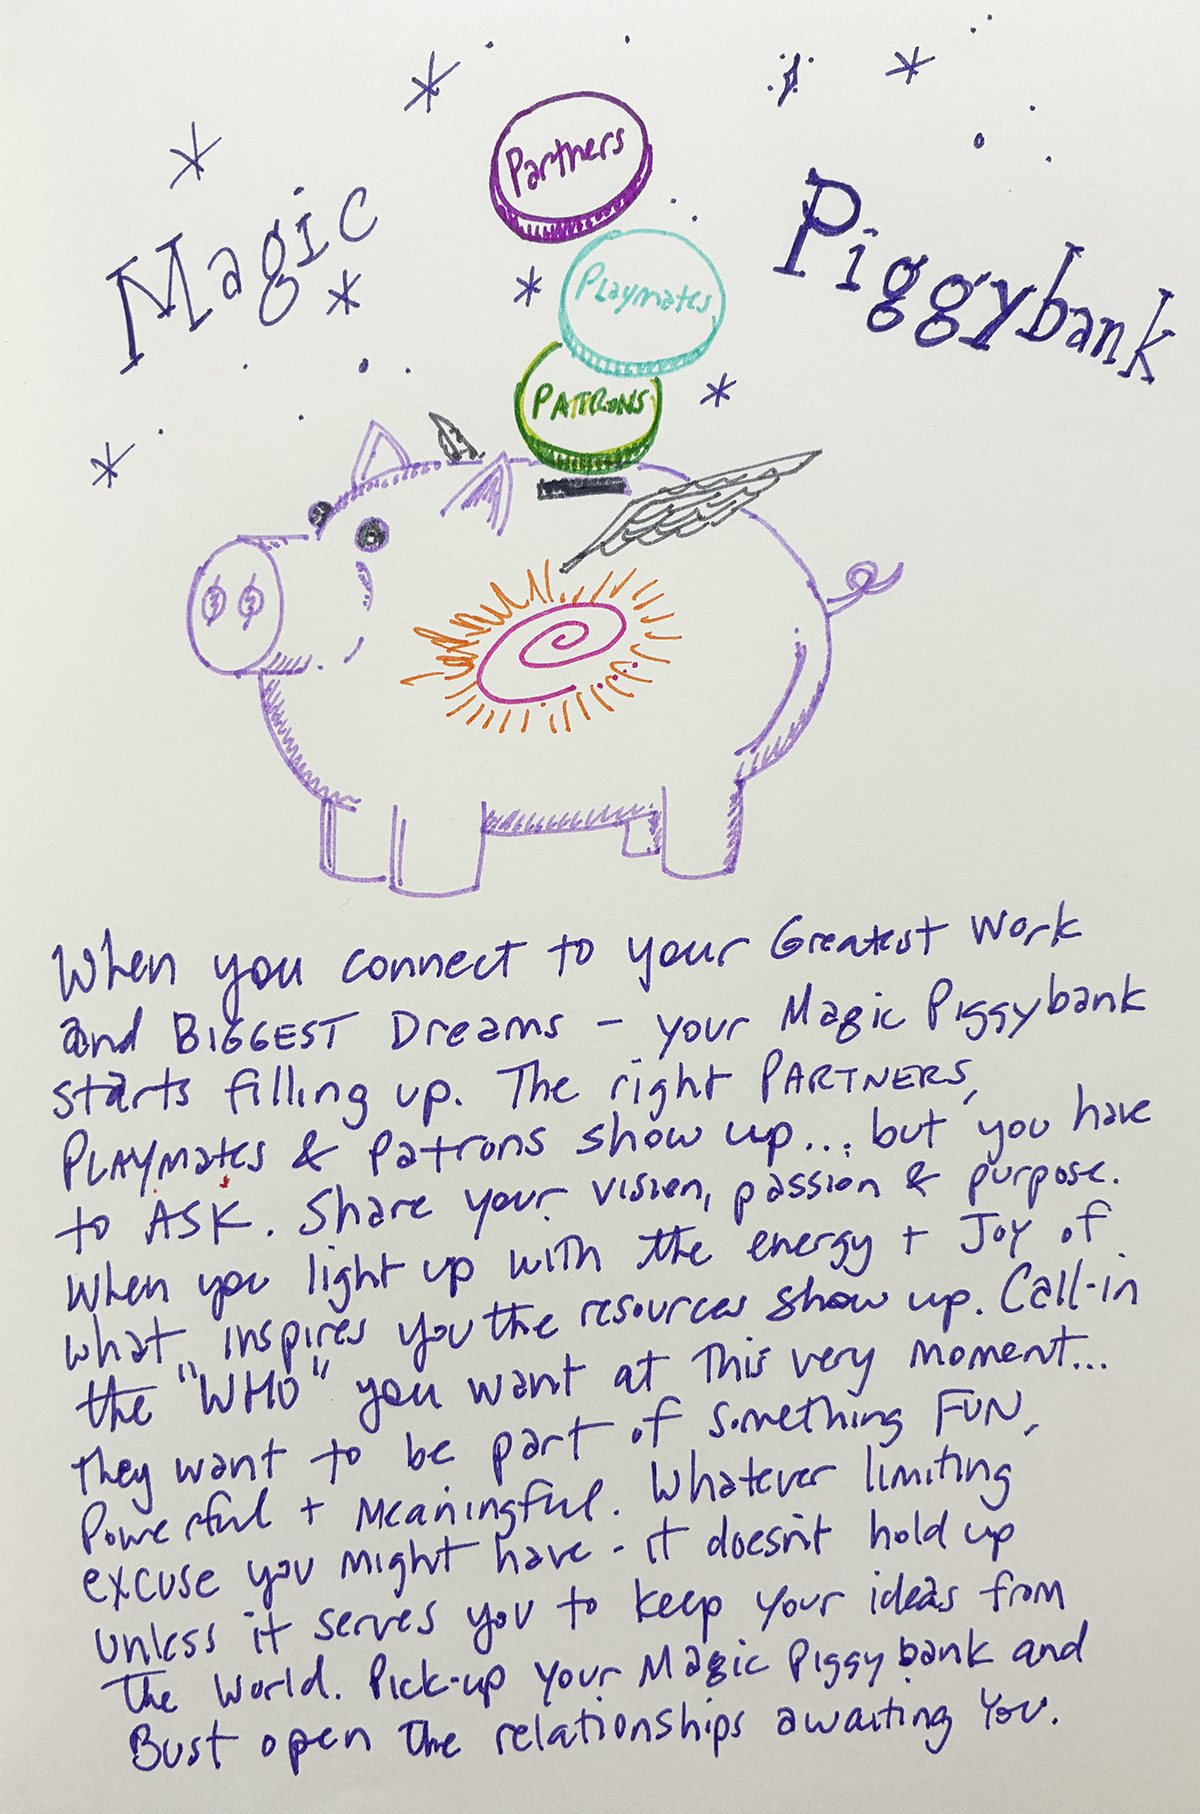 Magic
Piggybank
Partners
Playmates
PATRONS
When you connect to your Greatest Work
and BIGGEST Dreams – your Magic Piggybank
starts filling up. The right PARTNERS,
PLAYmates & Patrons show up... but you have
to ASK. Share your vision, passion & purpose.
When you light up with the energy + Joy of
what inspires you the resources show up. Call-in
the "WHO" you want at This very moment...
they want to be part of something FUN,
Powerful + Meaningful. Whatever limiting
excuse you might have - it doesn't hold up
unless it serves you to keep your ideas from
the World. Pick-up your Magic Piggybank and
Bust open the relationships awaiting You.